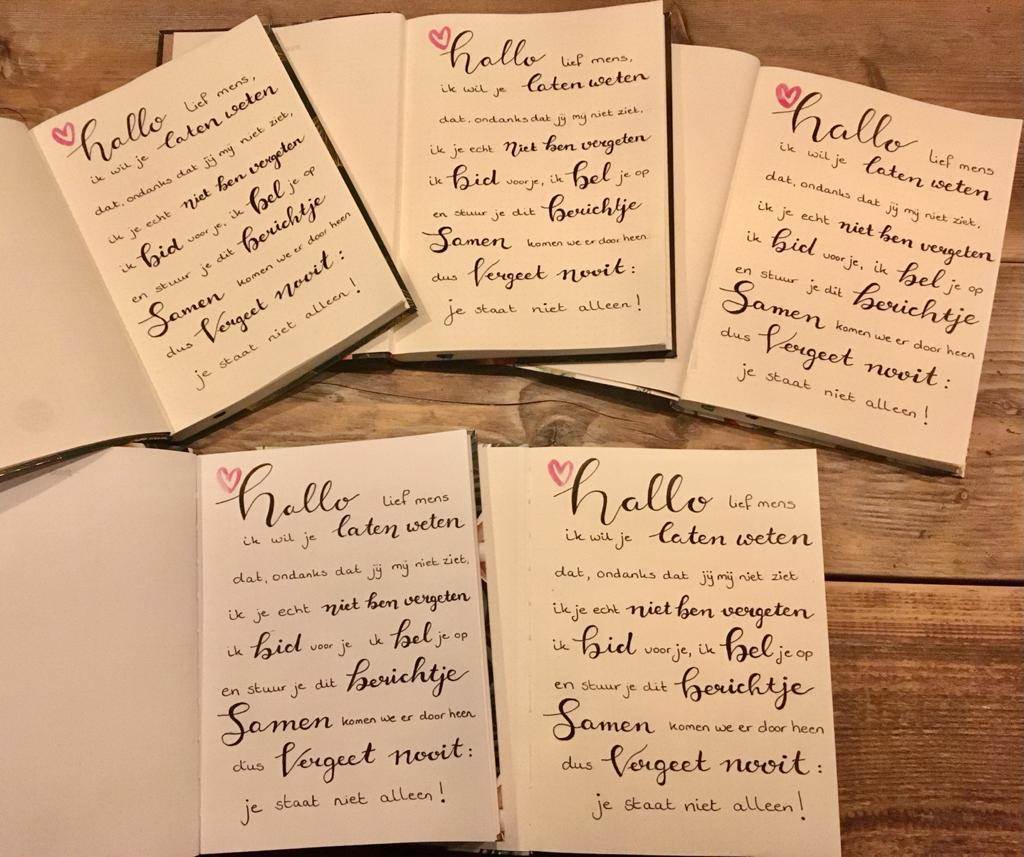 hallo lief mens,
ik wil je laten weten
dat, ondanks dat jij mij niet ziet,
ik je echt niet ben vergeten
ik bid voor je, ik bel je op
en stuur je dit berichtje
Samen komen we er door heen
dus Vergeet nooit:
je staat niet alleen!
hallo lief mens,
ik wil je laten weten
dat, ondanks dat jij mij niet ziet,
ik je echt niet ben vergeten
ik bid voor je, ik bel je op
en stuur je dit berichtje
Samen komen we er door heen
dus Vergeet nooit:
je staat niet alleen!
hallo lief mens
ik wil je laten weten
dat, ondanks dat jij mij niet ziet,
ik je echt niet ben vergeten
ik bid voor je, ik bel je op
en stuur je dit berichtje
Samen komen we er door heen
dus Vergeet nooit:
je staat niet alleen!
hallo lief mens
ik wil je laten weten
dat, ondanks dat jij mij niet ziet,
ik je echt niet ben vergeten
ik bid voor je ik bel je op
en stuur je dit berichtje
Samen komen we er door heen
dus Vergeet nooit:
je staat niet alleen!
hallo lief mens
ik wil je laten weten
dat, ondanks dat jij mij niet ziet
ik je echt niet ben vergeten
ik bid voor je, ik bel je op
en stuur je dit berichtje
Samen komen we er door heen
dus Vergeet nooit:
je staat niet alleen!